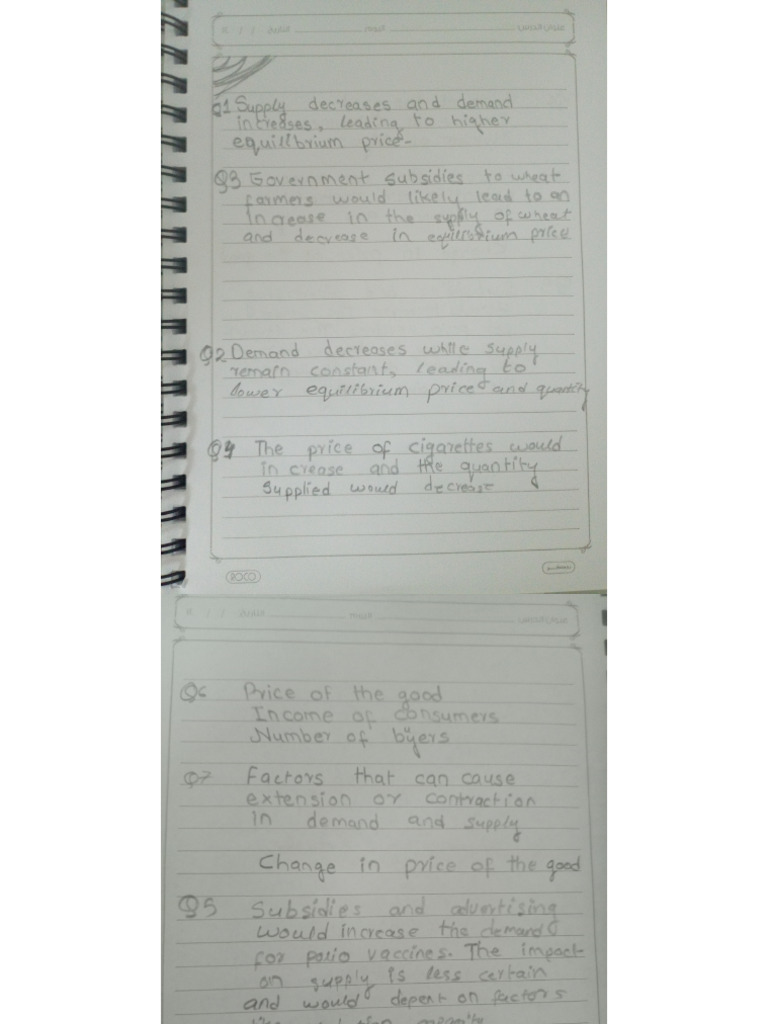 Q1 Supply decreases and demand
increases, leading to higher
equilibrium price-
Q3 Government subsidies to wheat
farmers would likely lead to an
increase in the supply of wheat
and decrease in equilibrium price
Q2 Demand decreases while supply
remain constant, leading to
lower equilibrium price and quantity
Q4 The price of cigarettes would
in crease and the quantity
Supplied would decrease
ROCO
Q6 Price of the good
Income of consumers
Number of buyers
Q7 Factors that can cause
extension or contraction
in demand and supply
Change in price of the good
Q5 Subsidies and advertising
would increase the demand
for polio vaccines. The impact
on supply is less certain
and would depent on factors